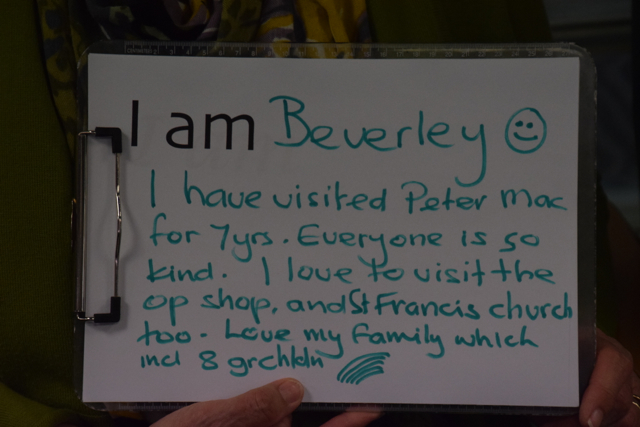 I am Beverley
I have visited Peter Mac
for 7yrs. Everyone is so
kind. I love to visit the
op shop, and St Francis church
too. Love my family which
incl 8 grchldn